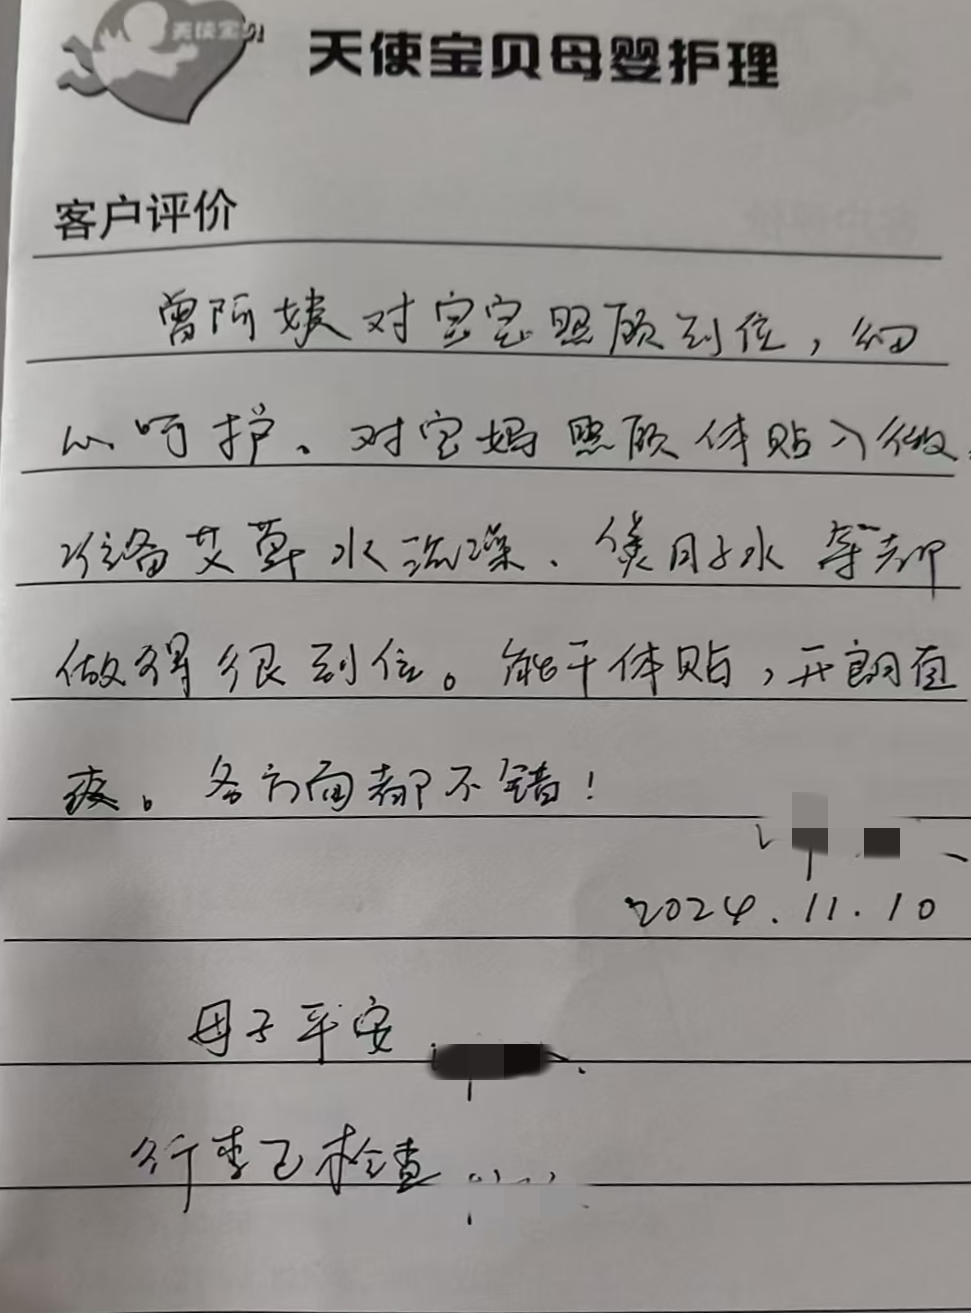 天使宝贝
天使宝贝母婴护理
客户评价
曾阿姨对宝宝照顾到位，细
心呵护、对宝妈照顾体贴入微
准备艾草水洗澡、煲月子水等都
做得很到位。能干体贴，开朗直
爽。各方面都不错！
2024.11.10
母子平安
行李已检查